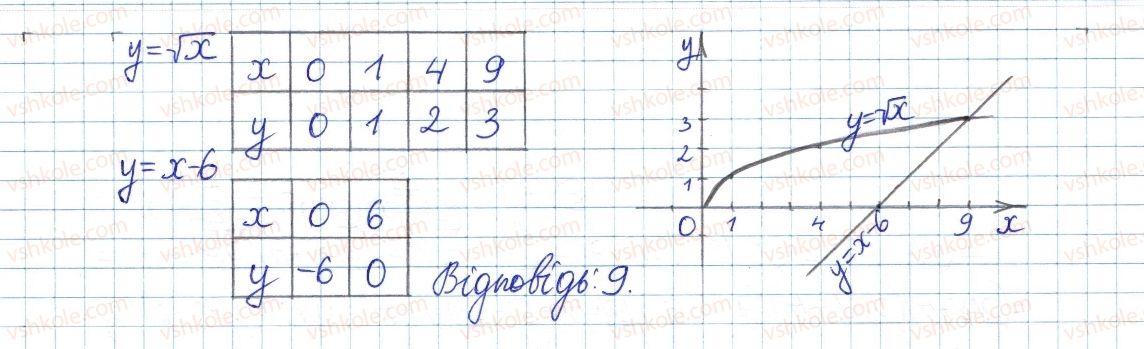 y=√x
x 0 1 4 9
y 0 1 2 3
y=x-6
x 0 6
y -6 0
Відповідь: 9.
y
3
2
1
0 1 4 6 9 x
y=√x
y=x-6
vshkole.com